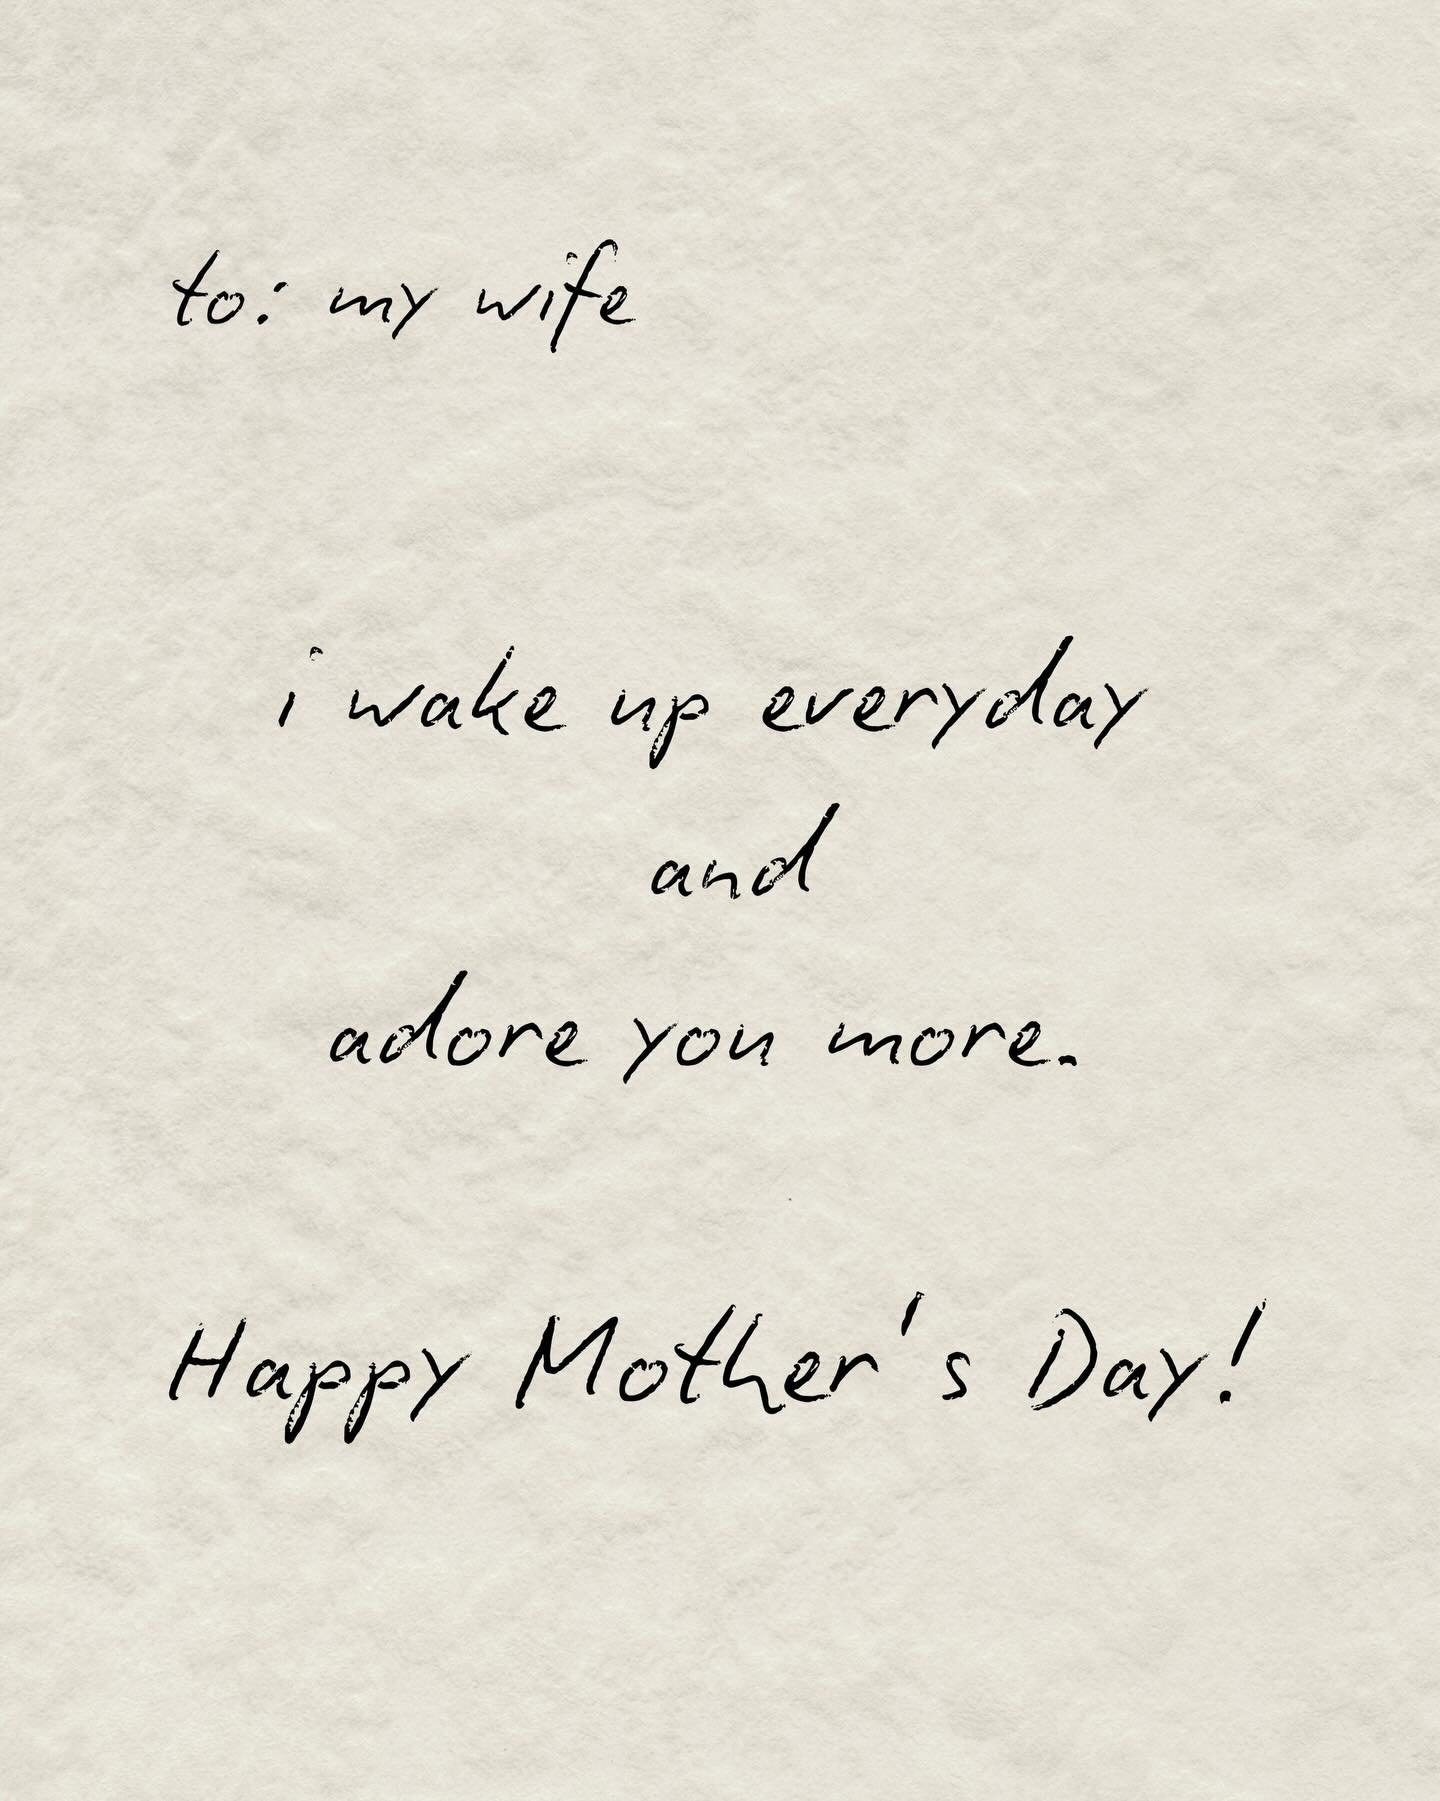 to: my wife
i wake up everyday
and
adore you more.
Happy Mother's Day!